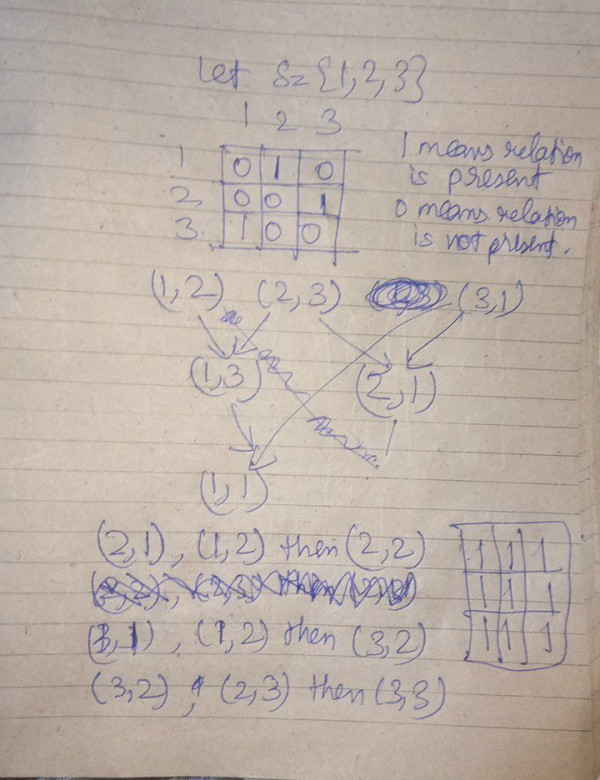 Let S={1,2,3}
1 2 3
1 0 1 0
2 0 0 1
3 1 0 0
1 means relation
is present
0 means relation
is not present.
(1,2) (2,3) (3,1)
(1,3) (2,1)
(1,1)
(2,1), (1,2) then (2,2)
(3,1), (1,2) then (3,2)
(3,2), (2,3) then (3,3)
1 1 1
1 1 1
1 1 1